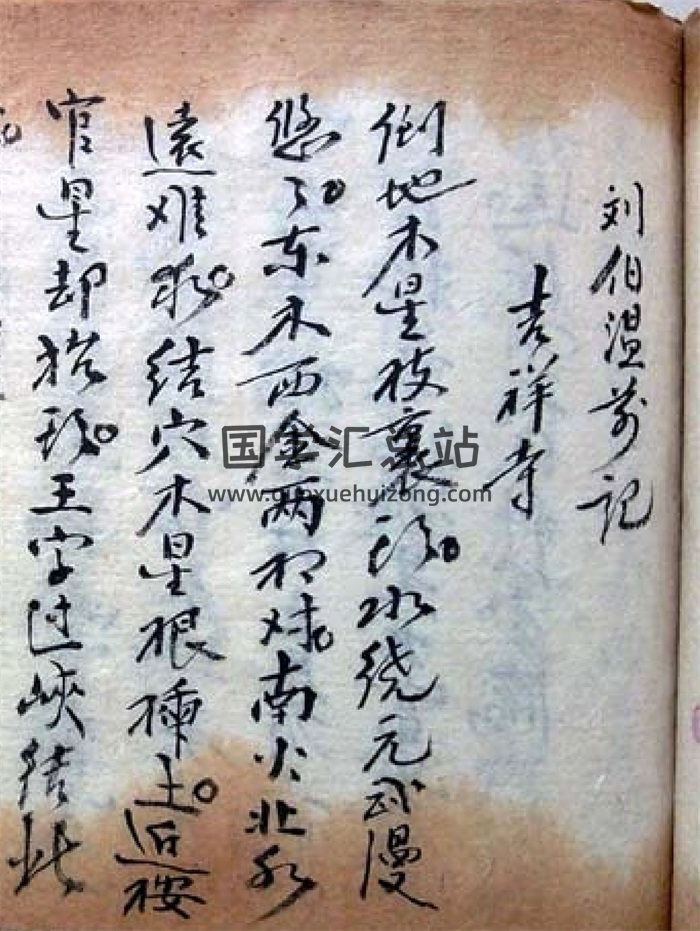 刘伯温前记
吉祥寺
倒地木星枝裹 水绕元武漫
悠々。东木西金两相对。南火北水
遠难 结穴木星根插土。近桉
官星却 王字过峡结此
国学汇总站
www.guoxuehuizong.com